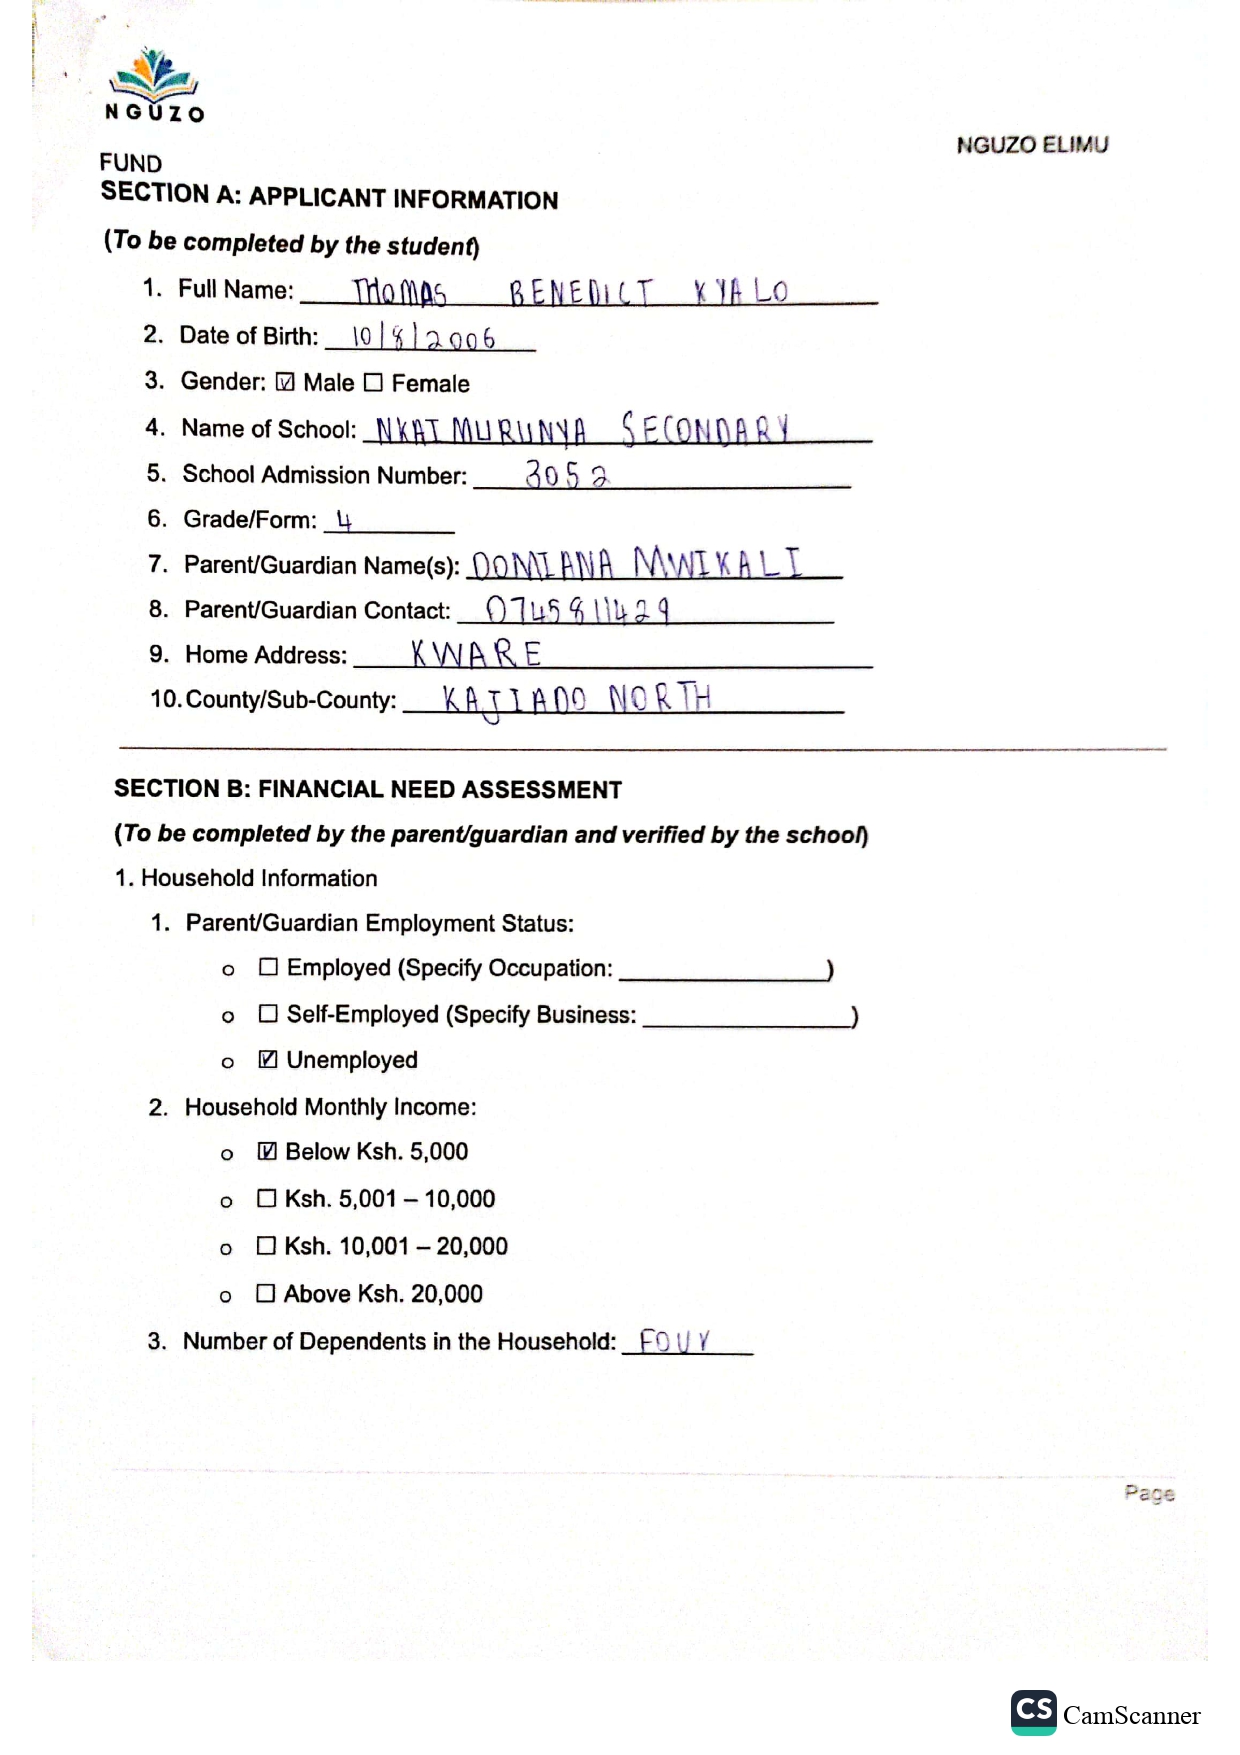 NGUZO
NGUZO ELIMU
FUND
SECTION A: APPLICANT INFORMATION
(To be completed by the student)
1. Full Name: THOMAS BENEDICT KYALO
2. Date of Birth: 10/8/2006
3. Gender: ☑ Male ☐ Female
4. Name of School: NKAIMURUNYA SECONDARY
5. School Admission Number: 3052
6. Grade/Form: 4
7. Parent/Guardian Name(s): DOMIANA MWIKALI
8. Parent/Guardian Contact: 0745811429
9. Home Address: KWARE
10. County/Sub-County: KAJIADO NORTH
SECTION B: FINANCIAL NEED ASSESSMENT
(To be completed by the parent/guardian and verified by the school)
1. Household Information
1. Parent/Guardian Employment Status:
o ☐ Employed (Specify Occupation: ____________)
o ☐ Self-Employed (Specify Business: ____________)
o ☑ Unemployed
2. Household Monthly Income:
o ☑ Below Ksh. 5,000
o ☐ Ksh. 5,001 – 10,000
o ☐ Ksh. 10,001 – 20,000
o ☐ Above Ksh. 20,000
3. Number of Dependents in the Household: FOUr
Page
CS CamScanner